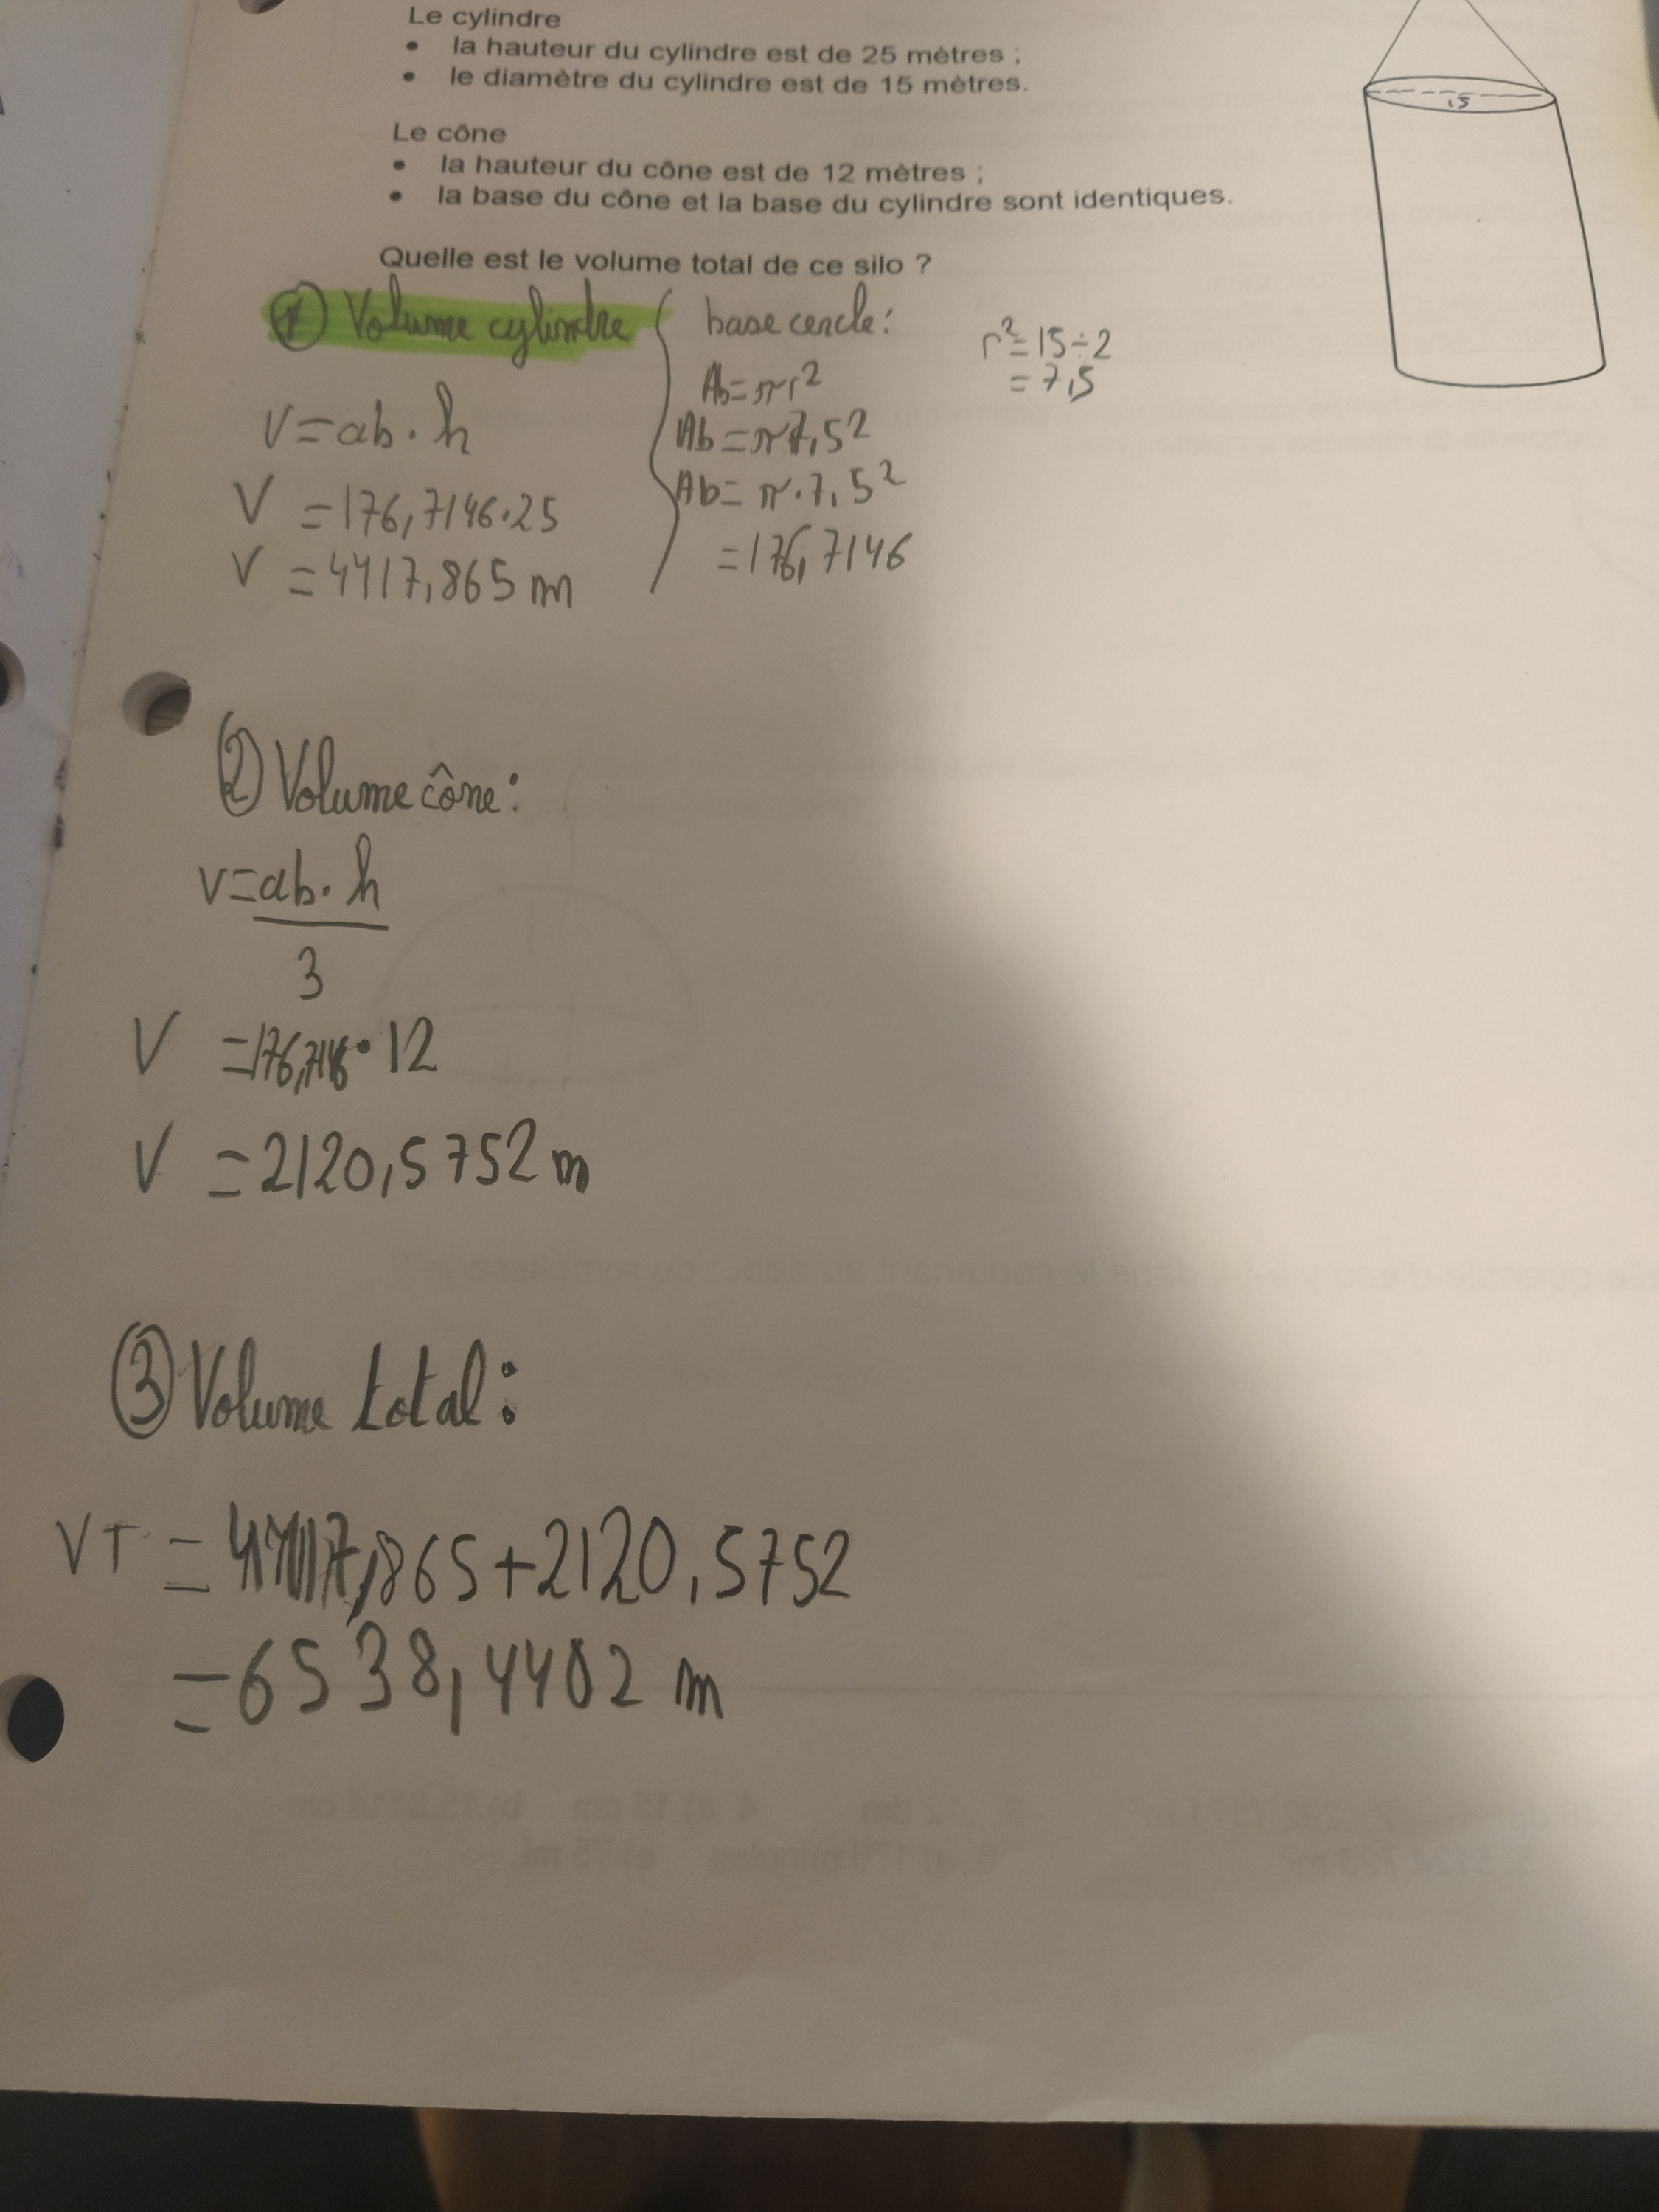 Le cylindre
• la hauteur du cylindre est de 25 mètres ;
• le diamètre du cylindre est de 15 mètres.
Le cône
• la hauteur du cône est de 12 mètres ;
• la base du cône et la base du cylindre sont identiques.
Quelle est le volume total de ce silo ?
15
① Volume cylindre
V=ab·h
V =176,7146·25
V =4417,865 m
base cercle:
Ab=πr²
Ab=π7,5²
Ab=π·7,5²
=176,7146
r²=15÷2
=7,5
② Volume cône:
V=ab·h
3
V =176,7146·12
V =2120,5752 m
③ Volume total:
VT =4417,865+2120,5752
=6538,4402 m